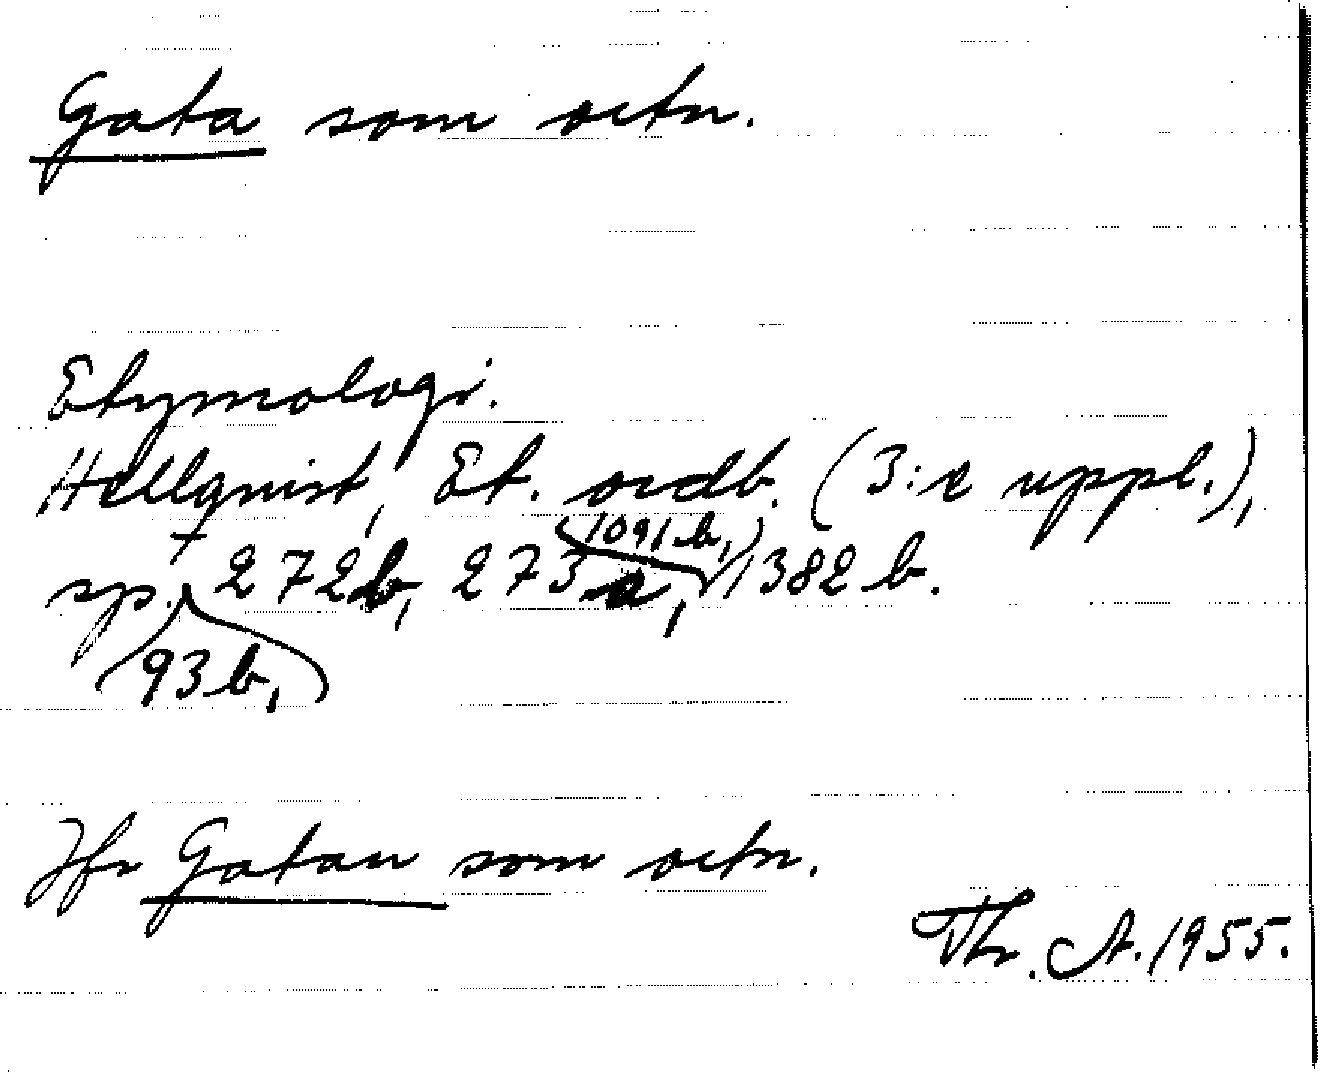 Gata som ortn.
Etymologi.
Hellquist, Et. ordb. (3:e uppl.),
sp. 93 b, 272 b, 273 a, 1091 b, 1382 b.
Jfr Gatan som ortn.
Thr. A. 1955.